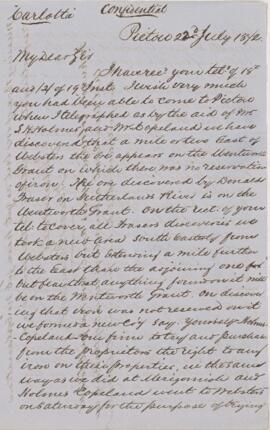 Carlotta Confidential
Pictou 22d July 1872
My Dear Sir
I have recd your let. of 18th
and of 19th Inst. I wish very much
you had been able to come to Pictou
when I telegraphed as by the aid of Mr
S. H. Holmes and Mr Copeland we have
discovered that a mile or two East of
Websters the Ore appears on the Wentworth
Grant on which there was no reservation
of iron. The one discovered by Donald
Fraser on Sutherlands River is on the
Wentworth Grant. On the of your
tel. to cover all Frasers discoveries we
took a new area South Easterly from
Websters but extending a mile further
to the East than the adjoining one
but fear that anything found on it will
be on the Wentworth Grant. On discover
ing that iron was not reserved on it
we formed a new Coy say Yourself Holmes
Copeland our firm to try and purchase
from the proprietors the right to any
iron on their properties, in the same
way as we did at Merigomish and
Holmes Copeland went to Websters
on Saturday for the purpose of trying